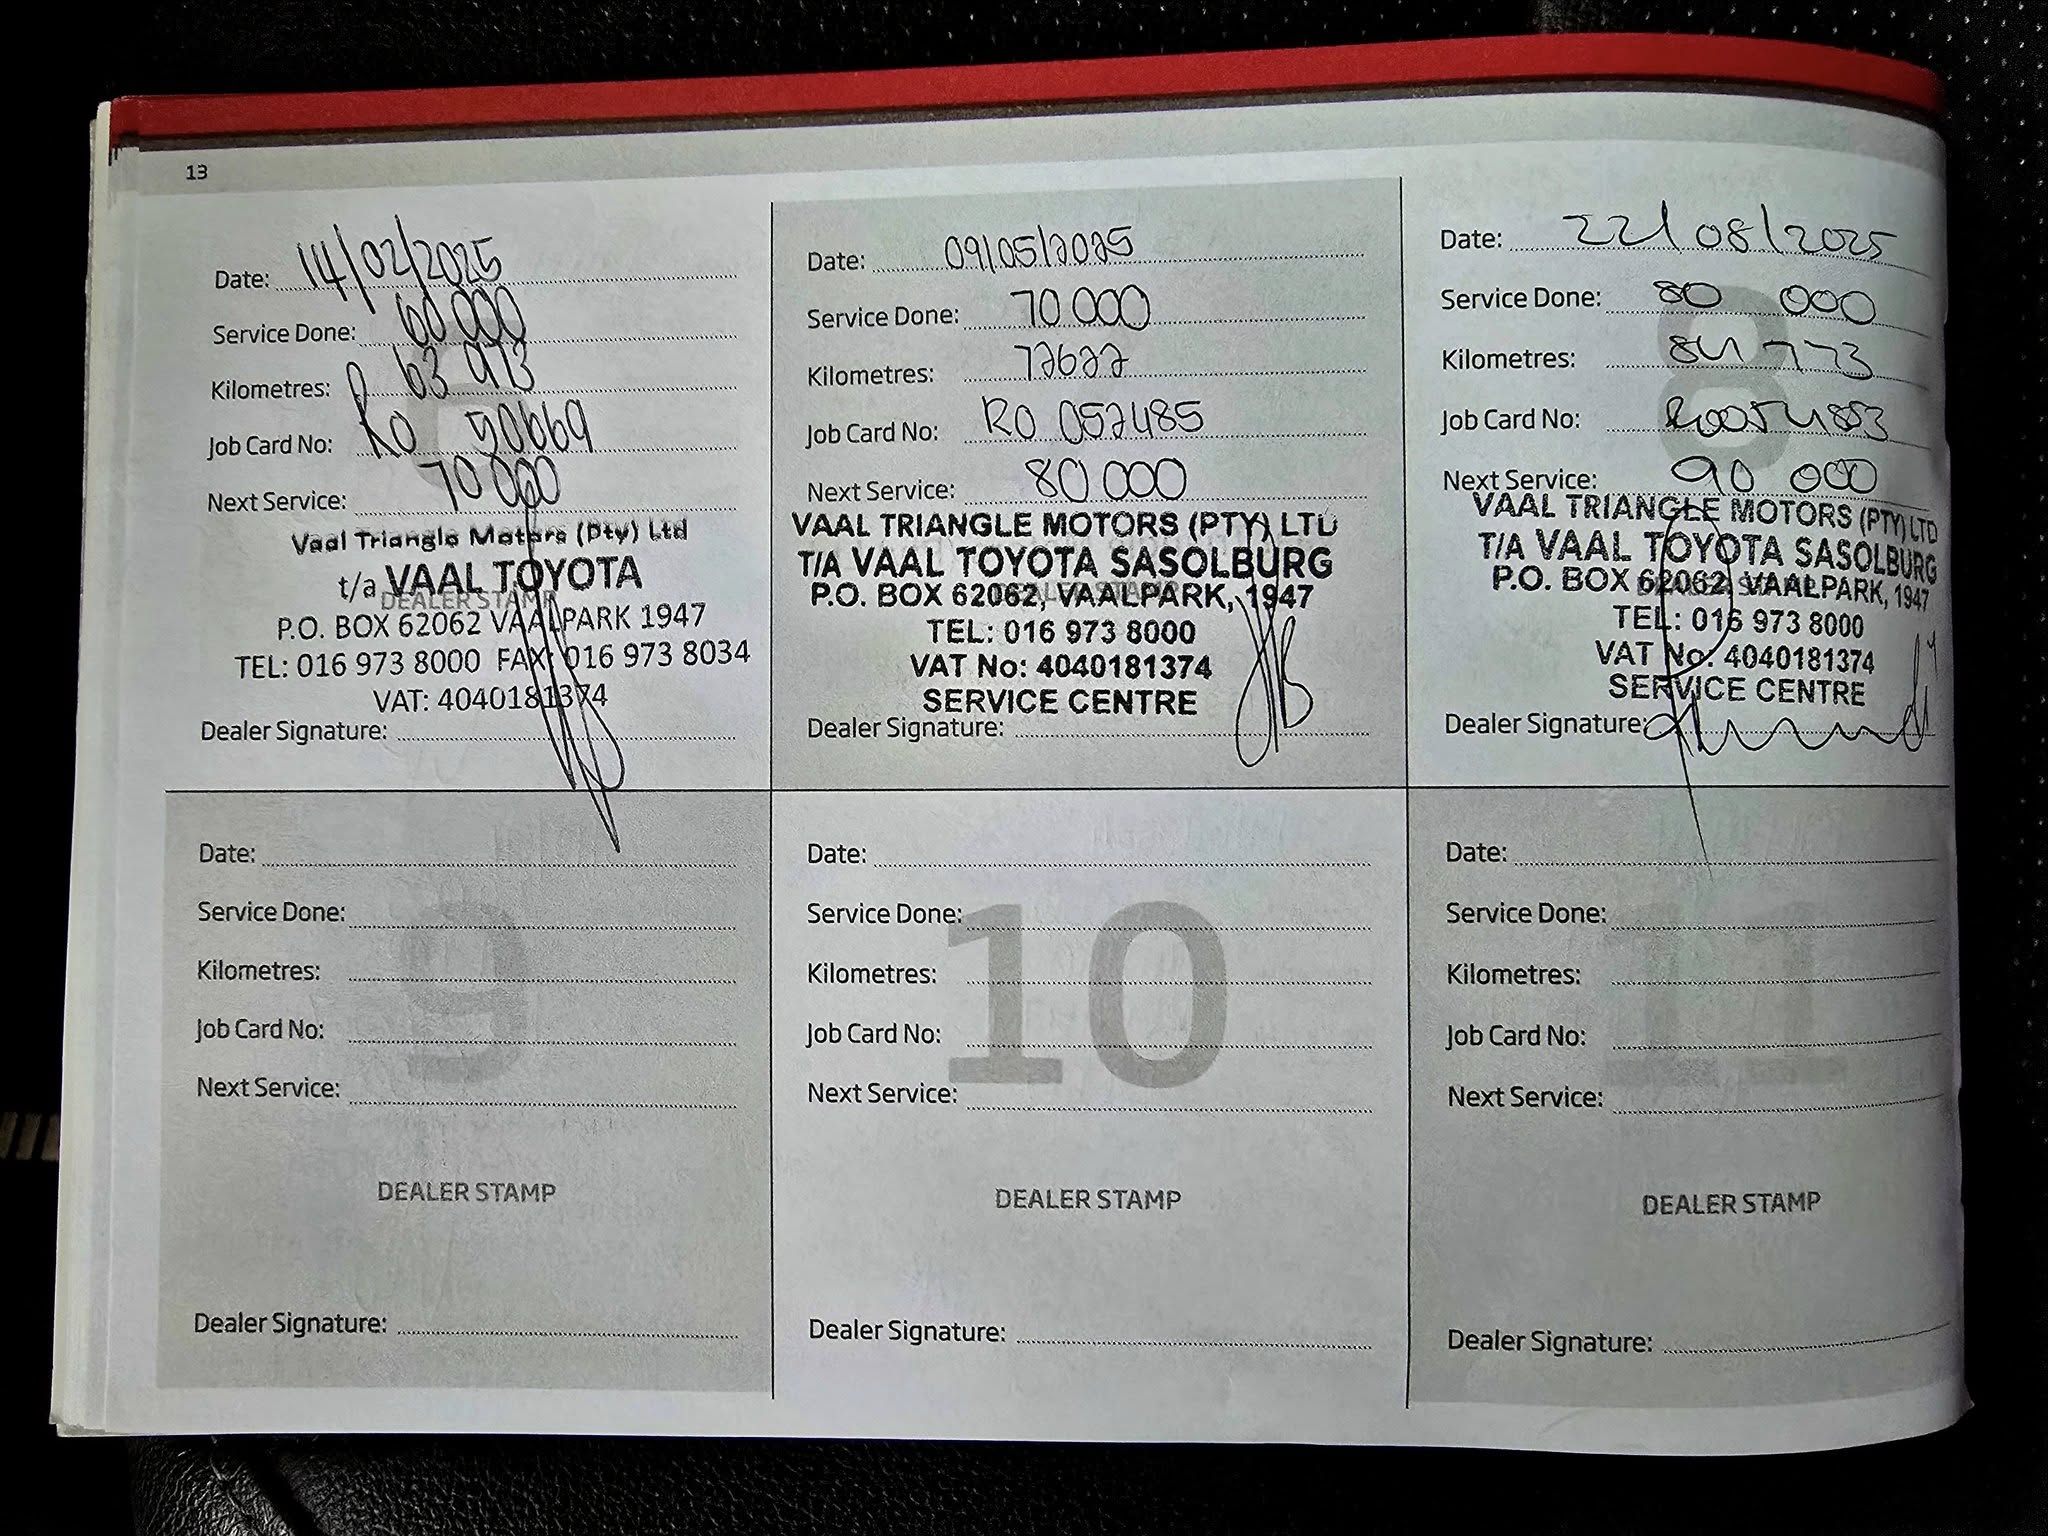 13
Date: 14/02/2025
Service Done: 60 000
Kilometres: 63 973
Job Card No: Ro 50669
Next Service: 70 000
Vaal Triangle Motors (Pty) Ltd
t/a VAAL TOYOTA
DEALER STAMP
P.O. BOX 62062 VAALPARK 1947
TEL: 016 973 8000 FAX: 016 973 8034
VAT: 4040181374
Dealer Signature:
Date: 09/05/2025
Service Done: 70 000
Kilometres: 72622
Job Card No: RO 052485
Next Service: 80 000
VAAL TRIANGLE MOTORS (PTY) LTD
T/A VAAL TOYOTA SASOLBURG
DEALER STAMP
P.O. BOX 62062, VAALPARK, 1947
TEL: 016 973 8000
VAT No: 4040181374
SERVICE CENTRE
Dealer Signature:
8
Date: 22/08/2025
Service Done: 80 000
Kilometres: 84 773
Job Card No: R0054853
Next Service: 90 000
VAAL TRIANGLE MOTORS (PTY) LTD
T/A VAAL TOYOTA SASOLBURG
P.O. BOX 62062, VAALPARK, 1947
TEL: 016 973 8000
VAT No: 4040181374
SERVICE CENTRE
Dealer Signature:
9
Date:
Service Done:
Kilometres:
Job Card No:
Next Service:
DEALER STAMP
Dealer Signature:
10
Date:
Service Done:
Kilometres:
Job Card No:
Next Service:
DEALER STAMP
Dealer Signature:
11
Date:
Service Done:
Kilometres:
Job Card No:
Next Service:
DEALER STAMP
Dealer Signature: